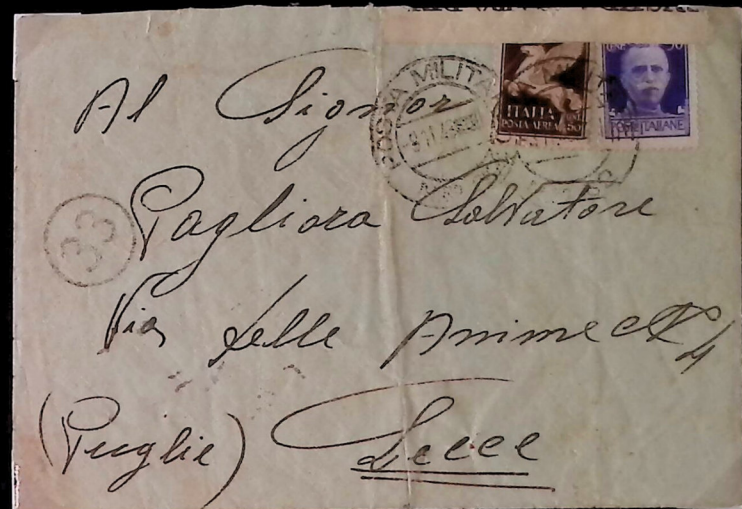 POSTA MILITA
ITALIA
POSTA AEREA 50
POSTE ITALIANE
Al Signor
33
Pagliara Salvatore
Via delle Anime N 4
(Puglie) Lecce